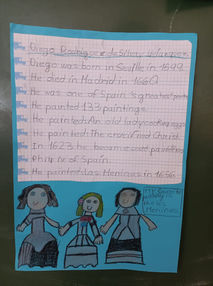 Diego Rodríguez de Silva Velázquez
Diego was born in Seville in 1599.
He died in Madrid in 1660.
He was one of Spain's greatest
He painted 133 paintings.
He painted: An old lady cooking eggs
He painted: The crucified Christ.
In 1623 he became court painter
Philip IV of Spain.
He painted Las Meninas in 1656.
Meninas